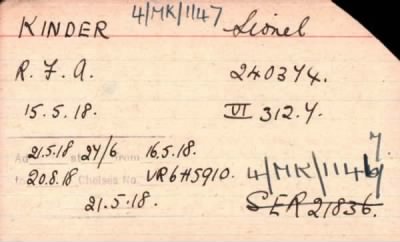 KINDER 4/MK/1147 Lionel
R. F. A. 240374.
15.5.18. VI 312.Y.
21.5.18 24/6 16.5.18. 7.
20.8.18 VR6H5910. 4/MK/1146
21.5.18. SER 21836.